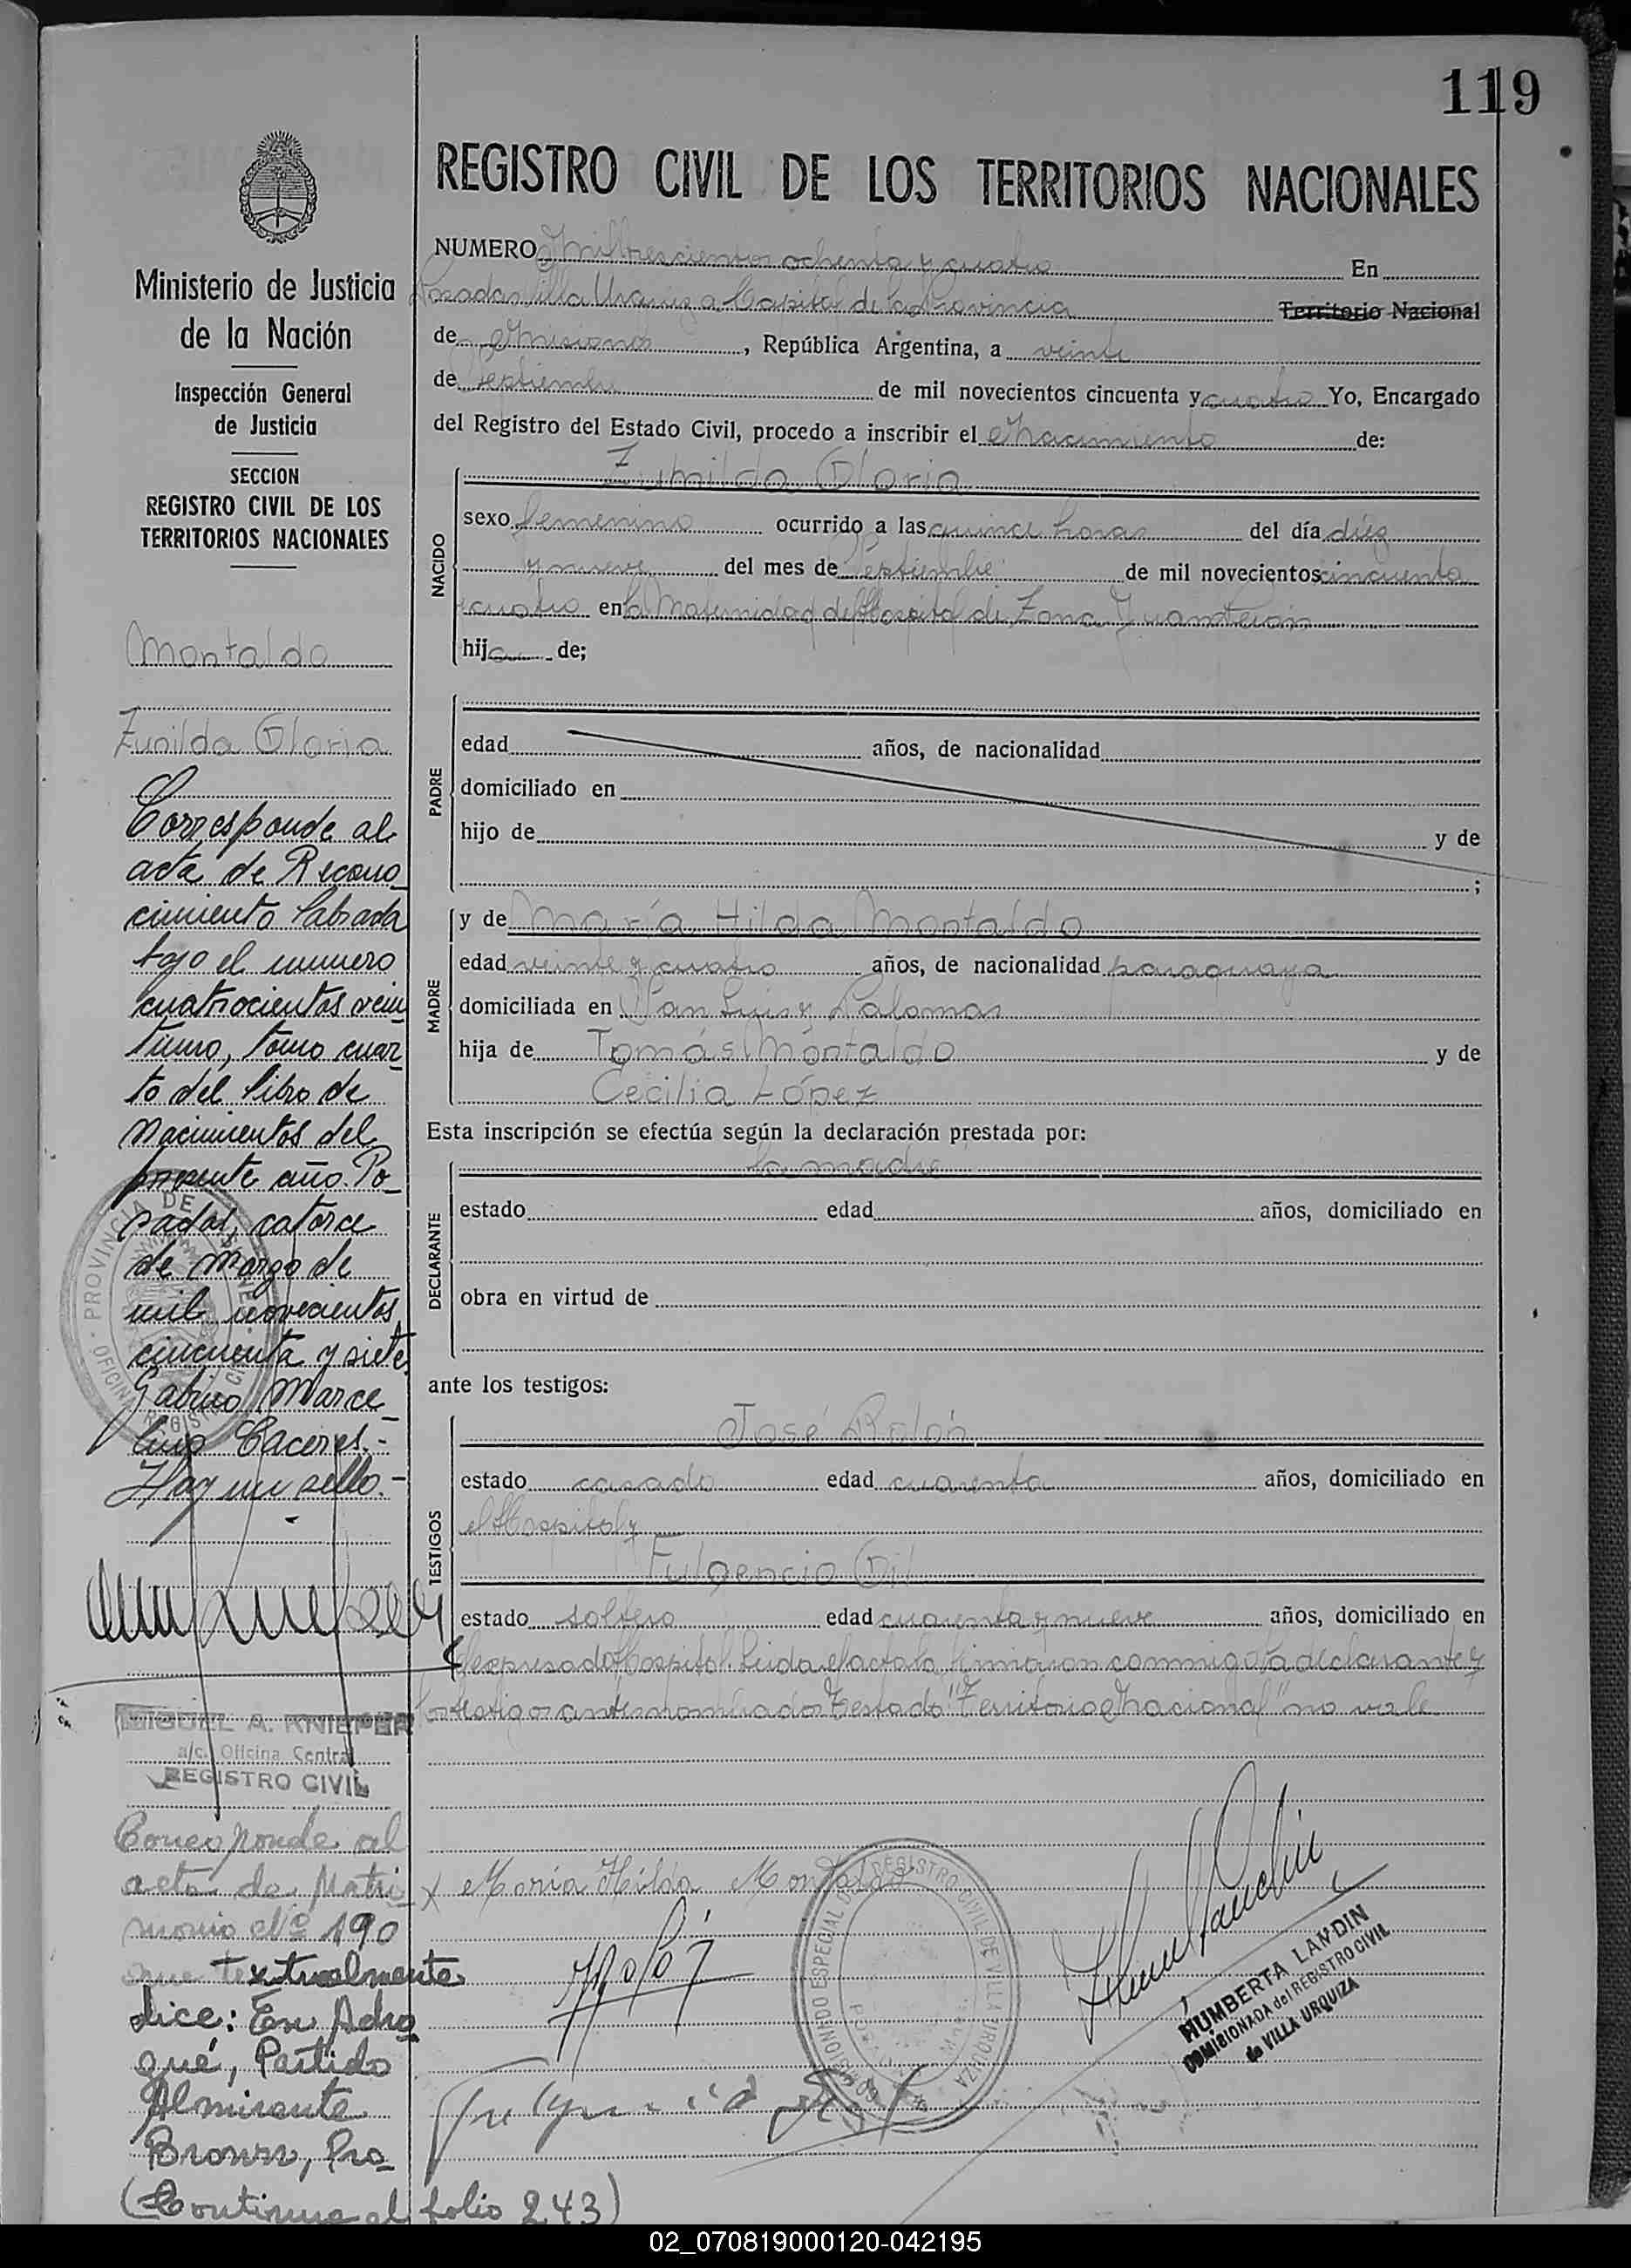 119
REGISTRO CIVIL DE LOS TERRITORIOS NACIONALES
Ministerio de Justicia
de la Nación
Inspección General
de Justicia
SECCION
REGISTRO CIVIL DE LOS
TERRITORIOS NACIONALES
Montaldo
Zunilda Gloria
Corresponde al
acta de Recono_
cimiento labrada
bajo el numero
cuatrocientos vein
tiuno, tomo cuar_
to del libro de
Nacimientos del
presente año. Po_
sadas, catorce
de Marzo de
mil novecientos
cincuenta y siete
Gabino Marce_
lino Caceres.-
Hay un sello.-
MIGUEL A. KNIEPER
a/c. Oficina Central
REGISTRO CIVIL
Corresponde al
acta de Matri
monio Nº 190
que textualmente
dice: En Adro
gué, Partido
Almirante
Brown, Pro_
(Continua al folio 243)
NUMERO Mil trescientos ochenta y cuatro En
Posadas Villa Urquiza Capital de la Provincia Territorio Nacional
de Misiones, República Argentina, a veinte
de Septiembre de mil novecientos cincuenta y cuatro Yo, Encargado
del Registro del Estado Civil, procedo a inscribir el Nacimiento de:
NACIDO
Zunilda Gloria
sexo femenino ocurrido a las quince horas del día diez
y nueve del mes de Septiembre de mil novecientos cincuenta
y cuatro en la Maternidad del Hospital de Zona Juan Perón
hija de;
PADRE
edad años, de nacionalidad
domiciliado en
hijo de y de
;
MADRE
y de María Hilda Montaldo
edad veinte y cuatro años, de nacionalidad paraguaya
domiciliada en San Luis y Palomar
hija de Tomás Montaldo y de
Cecilia López
Esta inscripción se efectúa según la declaración prestada por:
DECLARANTE
la madre
estado edad años, domiciliado en
obra en virtud de
ante los testigos:
TESTIGOS
José Rolón
estado casado edad cuarenta años, domiciliado en
el Hospital y
Fulgencio Gil
estado soltero edad cuarenta y nueve años, domiciliado en
el expresado Hospital. Leida el acta la firmaron conmigo la declarante y
los testigos antes nombrados Testado "Territorio Nacional" no vale
x María Hilda Montaldo
REGISTRO CIVIL DE VILLA URQUIZA
HUMBERTA LANDIN
COMISIONADA del REGISTRO CIVIL
de VILLA URQUIZA
PROVINCIA DE MISIONES
02_070819000120-042195